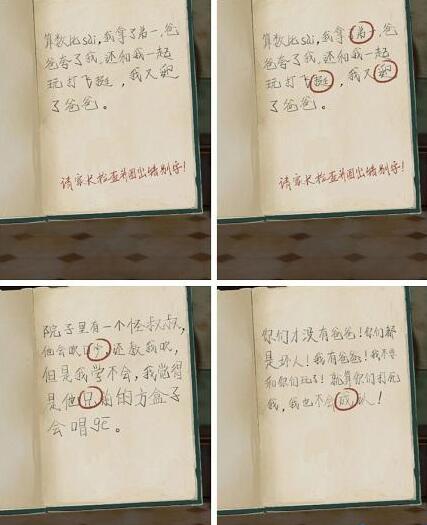 算数比sài,我拿了弟一,爸
爸夸了我,还和我一起
玩打飞挺,我又
了爸爸。
请家长检查并圈出错别字!
算数比sài,我拿了弟一,爸
爸夸了我,还和我一起
玩打飞挺,我又
了爸爸。
请家长检查并圈出错别字!
院子里有一个怪叔叔,
他会吹口今,还教我吹,
但是我学不会,我觉得
是他兄的方盒子
会唱gē。
你们才没有爸爸!你们都
是坏人!我有爸爸!我不要
和你们玩了!就算你们打死
我,我也不会成认!